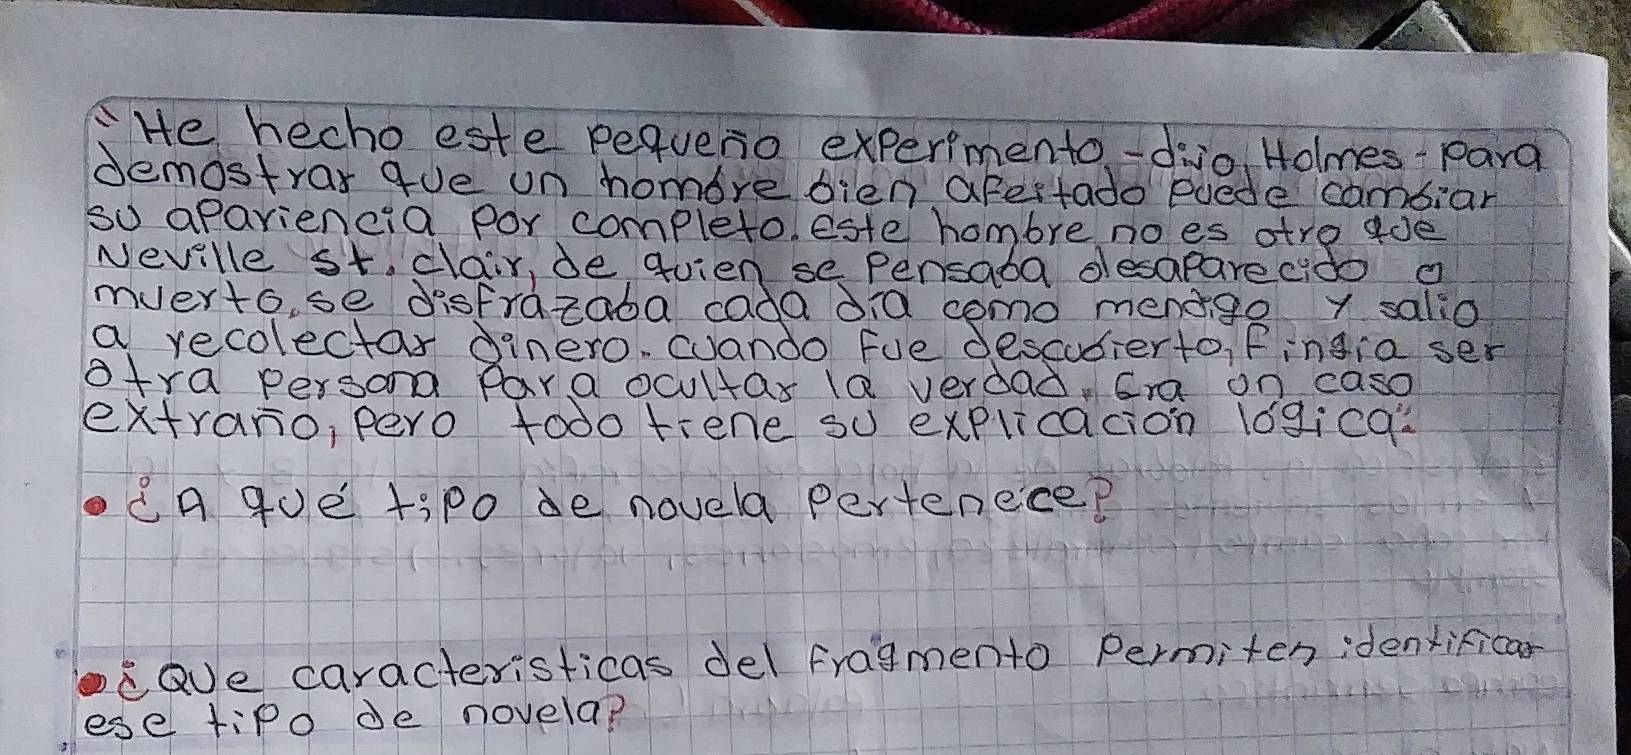 "He hecho este pequeño experimento -dijo Holmes- para
demostrar que un hombre bien afeitado puede cambiar
su apariencia por completo. este hombre no es otro que
Neville st. clair, de quien se pensaba desaparecido o
muerto, se disfrazaba cada día como mendigo y salio
a recolectar dinero. cuando fue descubierto, fingia ser
otra persona para ocultar la verdad. Era un caso
extraño, pero todo tiene su explicación lógica."
• ¿A qué tipo de novela pertenece?
• ¿Que caracteristicas del fragmento permiten identificar
ese tipo de novela?